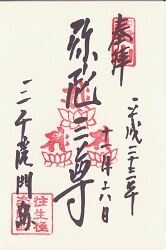 奉拝
平成二十二年
十一月二十八日
弥陀三尊
三千院門跡
往生極楽